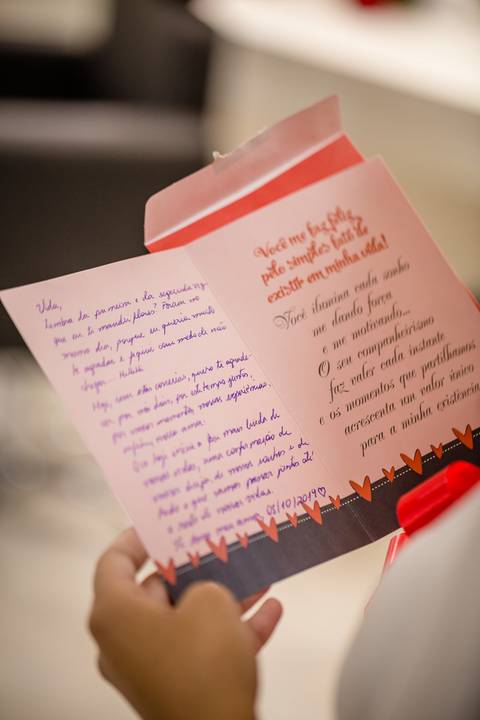 Vida,
Lembra da primeira e da segunda vez
que eu te mandei flores? Foram no
mesmo dia, porque eu queria muito
te agradar e fiquei com medo de não
chegar...
Hoje, com estas, quero te agrade-
cer por nós dois, por esse tempo juntos,
por nossos momentos, nossas experiências,
enfim, nosso amor.
Que hoje seja a
nossas vidas, uma confirmação de
nossos desejos, de nossos sonhos e de
tudo o que vamos passar juntos até
o resto de nossas vidas.
Te amo meu amor
08/10/2019
Você me faz feliz
pelo simples fato de
existir em minha vida!
Você ilumina cada sonho
me dando força
e me motivando...
O seu companheirismo
faz valer cada instante
e os momentos que partilhamos
acrescenta um valor único
para a minha existência